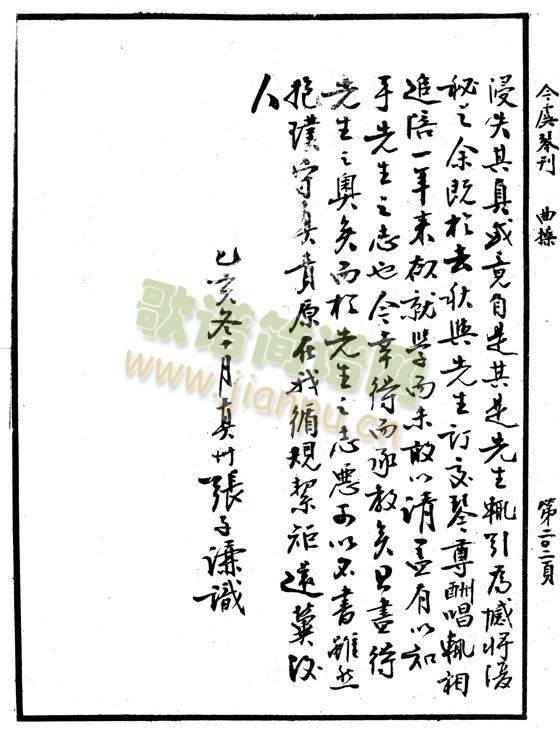 今虞琴刊 曲操 第二〇二頁
浸失其真或竟自是其是先生輒引為憾將復
秘之余既於去秋與先生訂交琴尊酬唱輒相
追陪一年来欲就學而未敢以請蓋有以知
乎先生之志也今幸得而承教矣且盡得
先生之奧矣而於先生之志悪可以不書雖然
抱璞守真責原在我循規絜矩還冀後
人
己亥冬十月真州張子謙識
歌谱简谱网
www.jianpu.cn